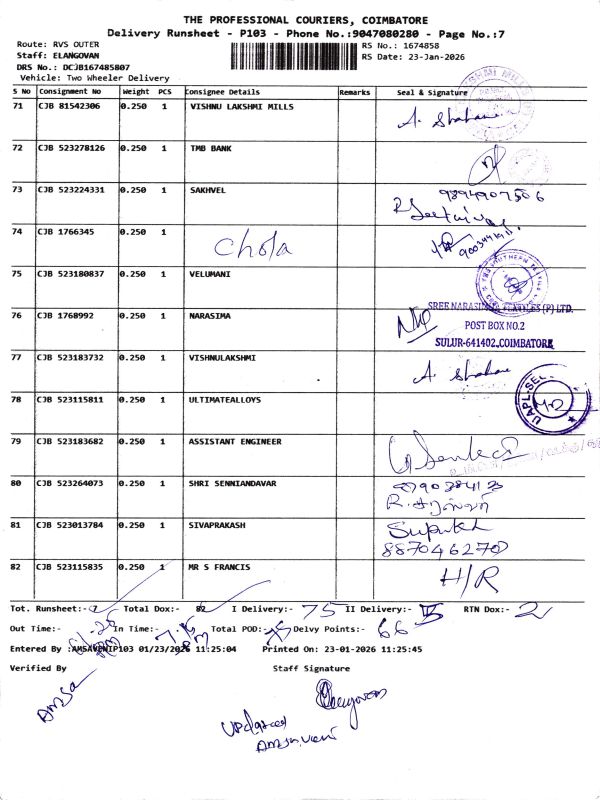 THE PROFESSIONAL COURIERS, COIMBATORE
Delivery Runsheet - P103 - Phone No.:9047080280 - Page No.:7
Route: RVS OUTER
RS No.: 1674858
Staff: ELANGOVAN
RS Date: 23-Jan-2026
DRS No.: DCJB167485807
Vehicle: Two Wheeler Delivery
S No Consignment No Weight PCS Consignee Details Remarks Seal & Signature
71 CJB 81542306 0.250 1 VISHNU LAKSHMI MILLS
72 CJB 523278126 0.250 1 TMB BANK
73 CJB 523224331 0.250 1 SAKHVEL 9894907506
74 CJB 1766345 0.250 1 Chola
75 CJB 523180837 0.250 1 VELUMANI
76 CJB 1768992 0.250 1 NARASIMA
POST BOX NO.2
SULUR-641402,COIMBATORE
77 CJB 523183732 0.250 1 VISHNULAKSHMI
78 CJB 523115811 0.250 1 ULTIMATEALLOYS
79 CJB 523183682 0.250 1 ASSISTANT ENGINEER
80 CJB 523264073 0.250 1 SHRI SENNIANDAVAR
81 CJB 523013784 0.250 1 SIVAPRAKASH
887046270
82 CJB 523115835 0.250 1 MR S FRANCIS H/R
Tot. Runsheet:- 7 Total Dox:- 82 I Delivery:- 75 II Delivery:- RTN Dox:- 2
Out Time:- In Time:- Total POD:- Delvy Points:- 66
Entered By :AMSAVENIP103 01/23/2026 11:25:04 Printed On: 23-01-2026 11:25:45
Verified By Staff Signature
Updated
Amsaveni